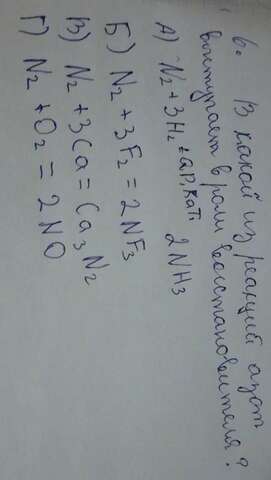 6. В какой из реакций азот
выступает в роли восстановителя?
А) N₂ + 3H₂ = 2NH₃
Б) N₂ + 3F₂ = 2NF₃
В) N₂ + 3Ca = Ca₃N₂
Г) N₂ + O₂ = 2NO